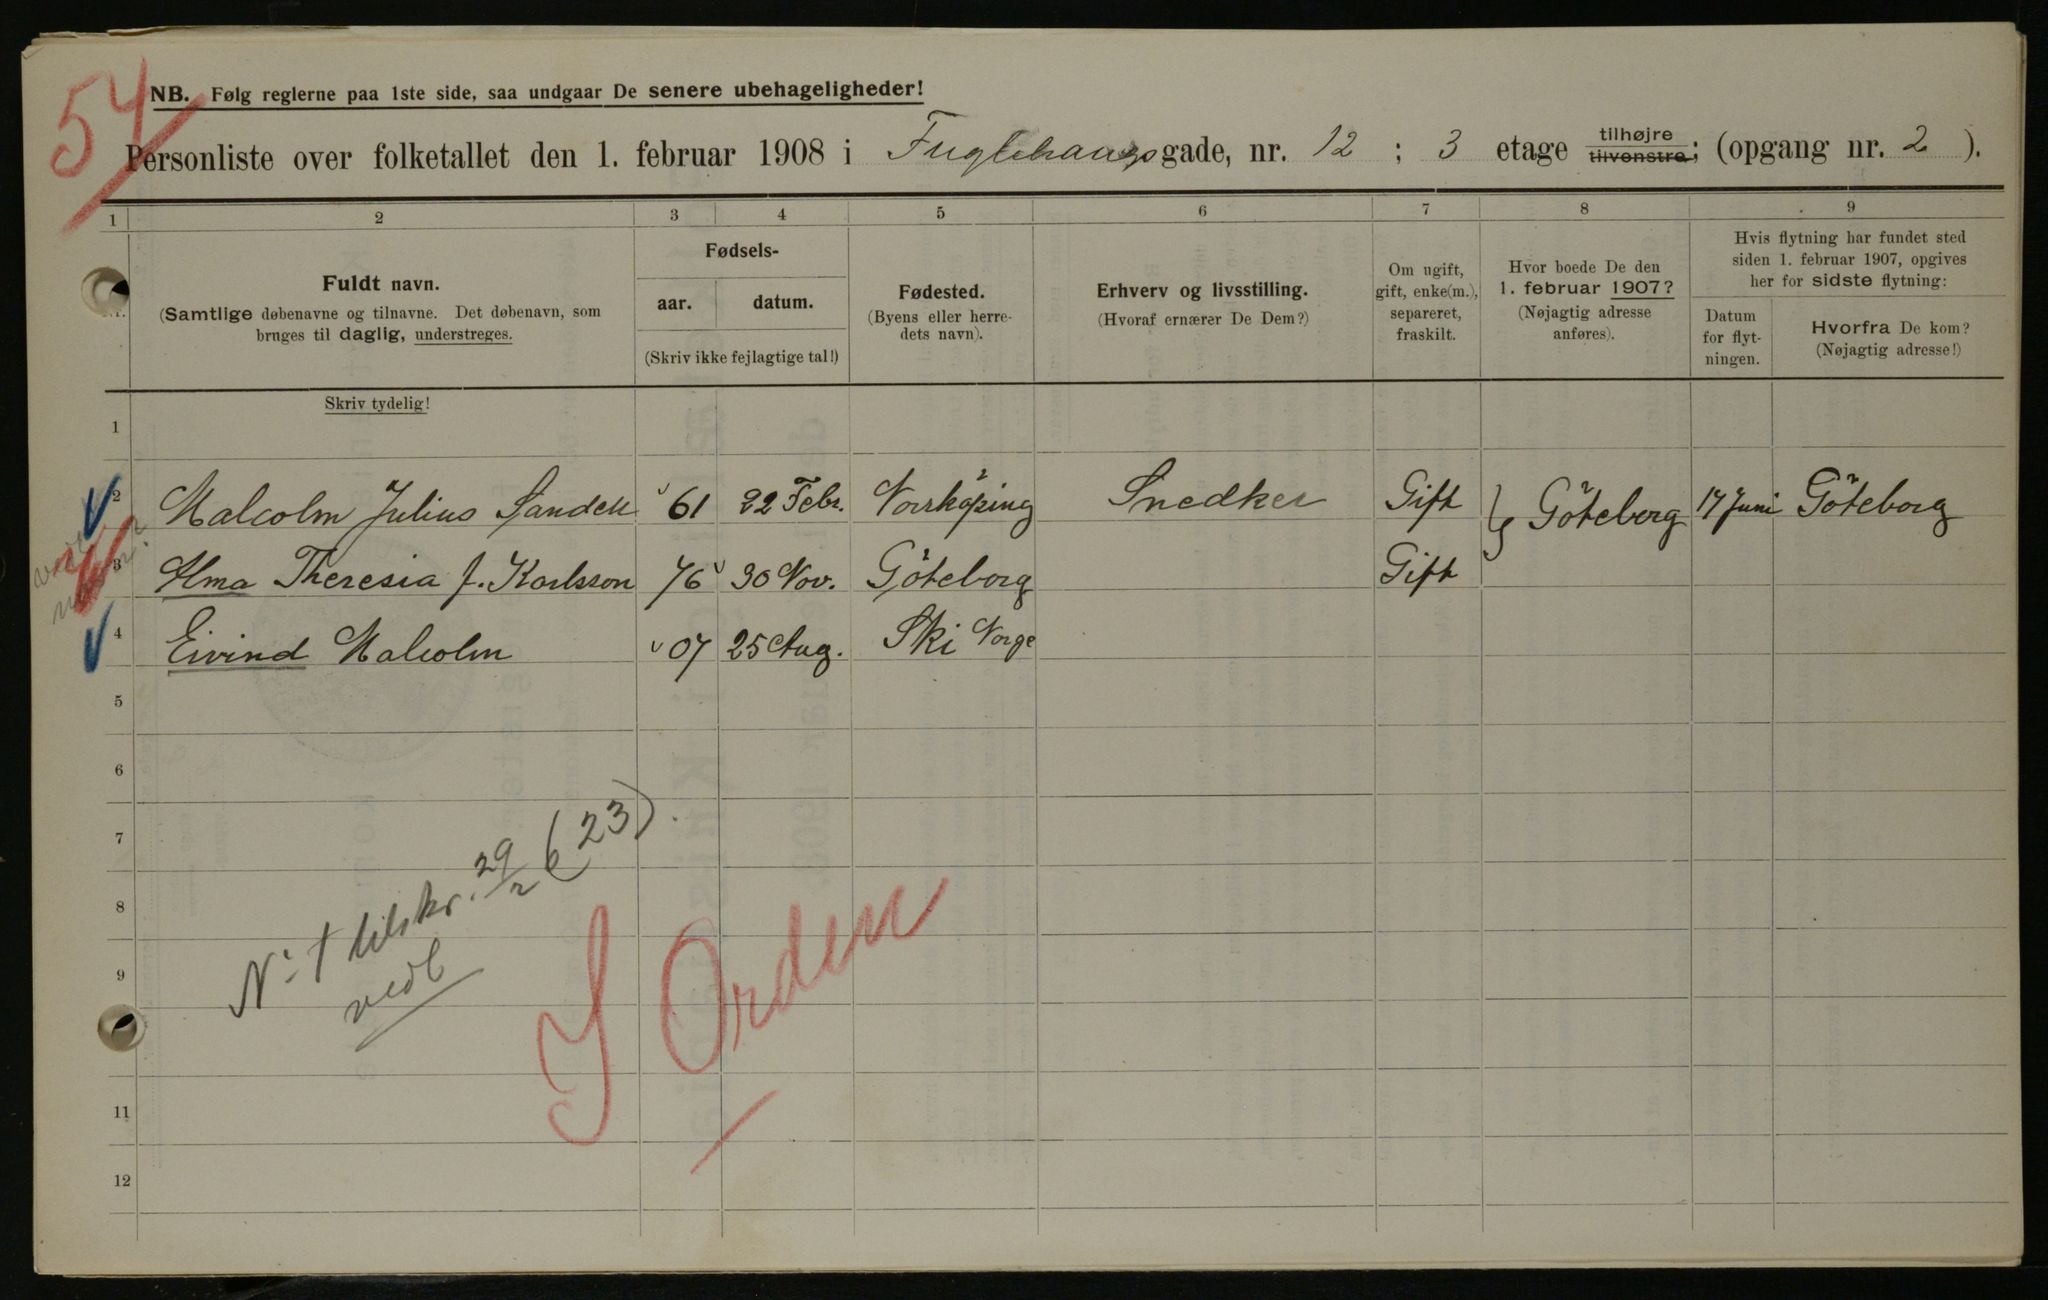 54
NB. Følg reglerne paa 1ste side, saa undgaar De senere ubehageligheder!
Personliste over folketallet den 1. februar 1908 i Fuglehaugsgade, nr. 12 ; 3 etage tilhøjre tilvenstre; (opgang nr. 2 ).
1 2 3 4 5 6 7 8 9
Fuldt navn.
(Samtlige døbenavne og tilnavne. Det døbenavn, som
bruges til daglig, understreges.
Skriv tydelig!
Fødsels-
aar. datum.
(Skriv ikke fejlagtige tal!)
Fødested.
(Byens eller herre-
dets navn).
Erhverv og livsstilling.
(Hvoraf ernærer De Dem?)
Om ugift,
gift, enke(m.),
separeret,
fraskilt.
Hvor boede De den
1. februar 1907?
(Nøjagtig adresse
anføres).
Hvis flytning har fundet sted
siden 1. februar 1907, opgives
her for sidste flytning:
Datum
for flyt-
ningen.
Hvorfra De kom?
(Nøjagtig adresse!)
1
2 Malcolm Julius Sandell 61 22 Febr. Norrköping Snedker Gift } Göteborg 17 Juni Göteborg
3 Alma Theresia f. Karlsson 76 30 Nov. Göteborg Gift
4 Eivind Malcolm 07 25 Aug. Ski Norge
5
6
7
8
9
11
12
No 1 tilskr. 29/2 (23).
vedl
I Orden